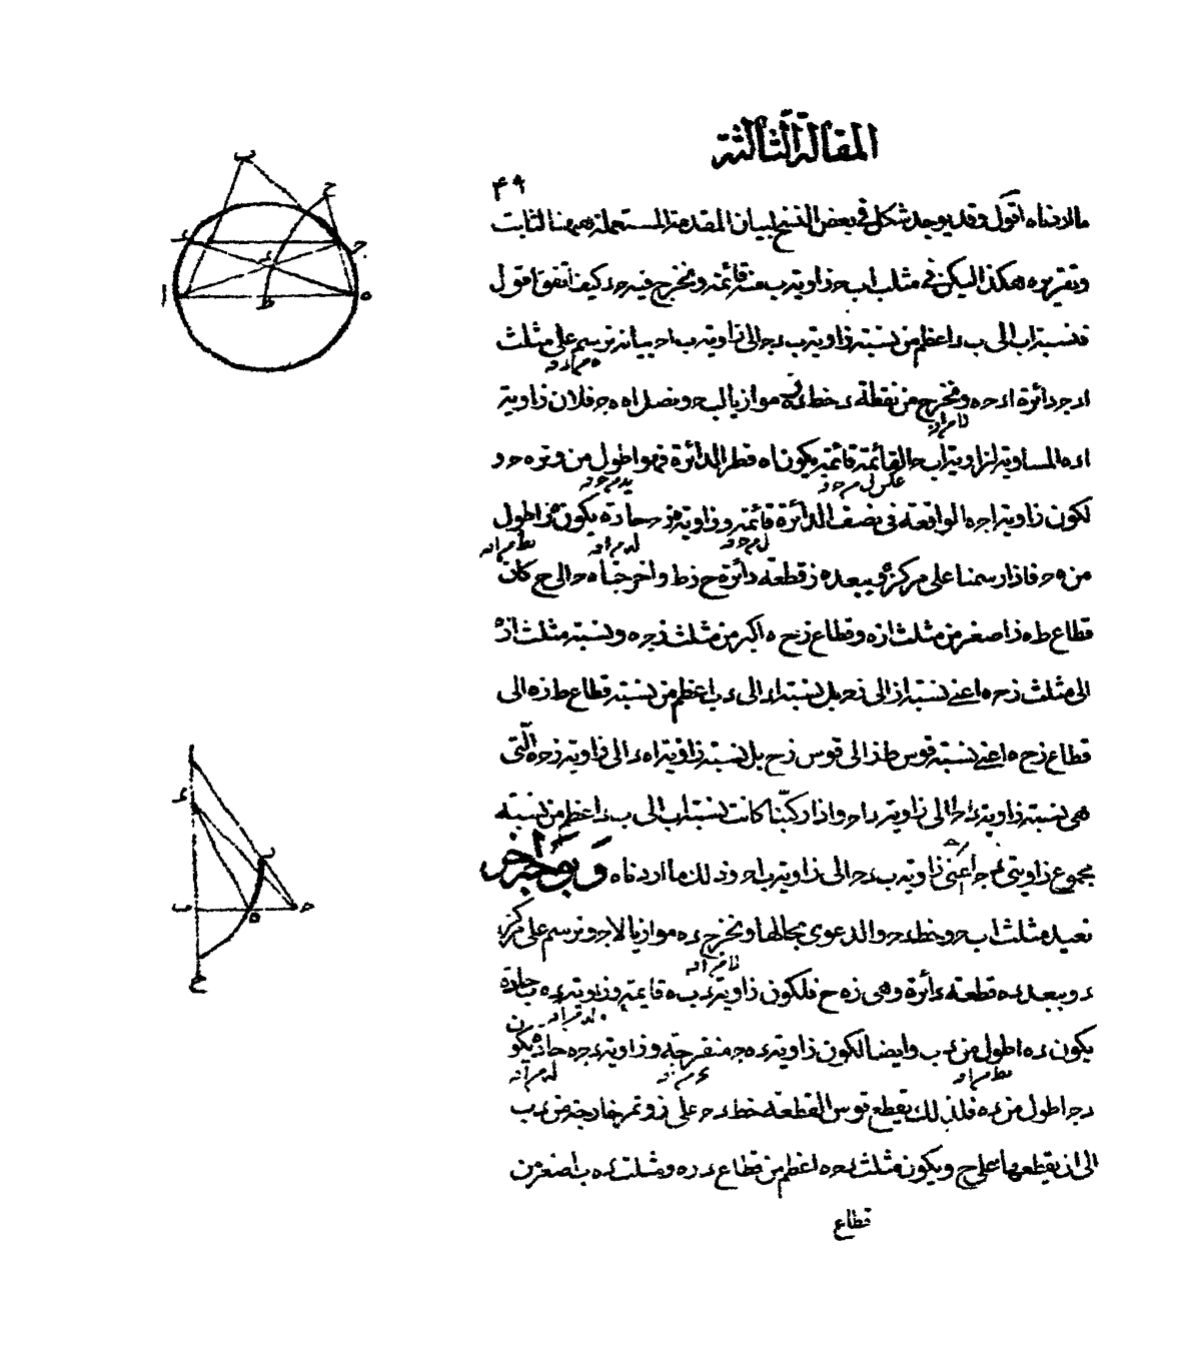 المقالة الثالثة
٤٩
ما اردناه اقول وقد يوجد شكل في بعض النسخ لبيان المقدمة المستعملة ههنا لثابت
وتقريره هكذا ليكن في مثلث ا ب ح زاوية ب منه قائمة ونخرج فيه ح د كيف اتفق اقول
فنسبة ا ب الى ب د اعظم من نسبة زاوية ب د ح الى زاوية ب ا ح بيانه نرسم على مثلث
ا د ح دائرة ا د ح ه ونخرج من نقطة د خط د ز ه موازيا لب ح ونصل ا ه ه ح فلان زاوية
ا د ه المساوية لزاوية ا ب ح القائمة قائمة يكون ا ه قطر الدائرة فهو اطول من وتر ه ح و
لكون زاوية ا ح ه الواقعة في نصف الدائرة قائمة وزاوية ه ز ح حادة يكون ه ز اطول
من ه ح فاذا رسمنا على مركز ه وببعد ه ز قطعة دائرة ح ز ط واخرجنا ه ح الى ح كان
قطاع ط ه ز اصغر من مثلث ا ز ه وقطاع ز ح ه اكبر من مثلث ز ح ه ونسبة مثلث ا ز ه
الى مثلث ز ح ه اعني نسبة ا ز الى ز ح بل نسبة ا د الى د ب اعظم من نسبة قطاع ط ز ه الى
قطاع ز ح ه اعني نسبة قوس ط ز الى قوس ز ح بل نسبة زاوية ا ه د الى زاوية ز ه ح التي
هي نسبة زاوية د ح ا الى زاوية د ا ح واذا ركبنا كانت نسبة ا ب الى ب د اعظم من نسبة
مجموع زاويتي اعني زاوية ب د ح الى زاوية ب ا ح وذلك ما اردناه وبوجه آخر
نعيد مثلث ا ب ح وخط د ح والدعوى بحالها ونخرج د ه موازيا لا ح ونرسم على مركز
د وببعد د ه قطعة دائرة وهي ز ه ح فلكون زاوية د ب ه قائمة وزاوية د ه ب حادة
يكون د ه اطول من د ب وايضا لكون زاوية د ه ح منفرجة وزاوية د ح ه حادة يكون
د ح اطول من د ه فلذلك يقطع قوس القطعة خط د ح على ز وتمر خارجة من د ب
الى ان يقطعها على ح ويكون مثلث د ح ه اعظم من قطاع د ز ه ومثلث د ه ب اصغر من
قطاع